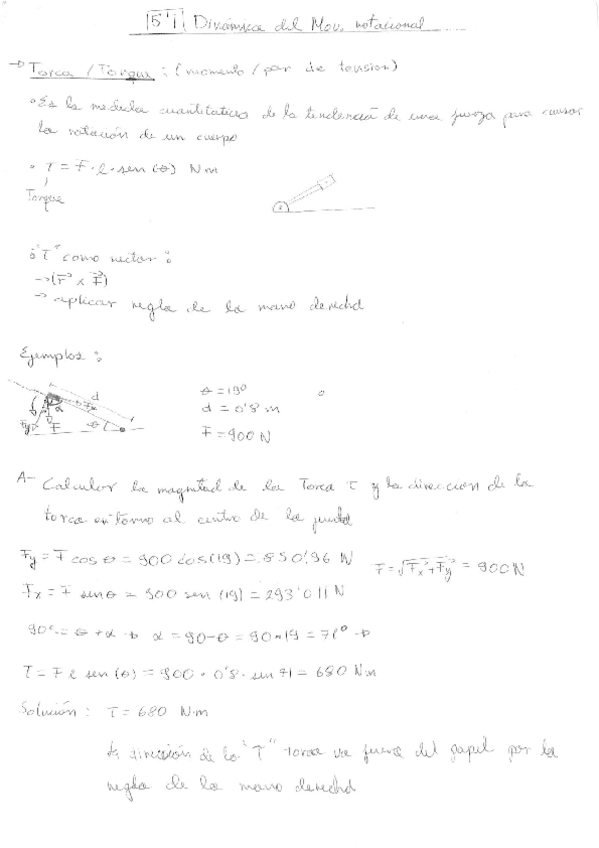 5'1 Dinámica del Mov. rotacional
→ Torca / Torque : (momento / par de tension)
• Es la medida cuantitativa de la tendencia de una fuerza para causar
la rotación de un cuerpo
• τ = F · l · sen (θ) N m
Torque
• "τ" como vector :
→ (r x F)
→ aplicar regla de la mano derecha
Ejemplos :
d
Fx
α
Fy F θ
θ = 19º
d = 0'8 m
F = 900 N
A- Calcular la magnitud de la Torca τ y la dirección de la
torca en torno al centro de la junta
Fy = F cos θ = 900 cos(19) = 850'96 N
F = √Fx² + Fy² = 900 N
Fx = F sen θ = 900 sen (19) = 293'011 N
90º = θ + α → α = 90 - θ = 90 - 19 = 71º →
τ = F l sen (θ) = 900 · 0'8 · sen 71 = 680 N·m
Solución : τ = 680 N·m
La dirección de la "τ" torca va fuera del papel por la
regla de la mano derecha